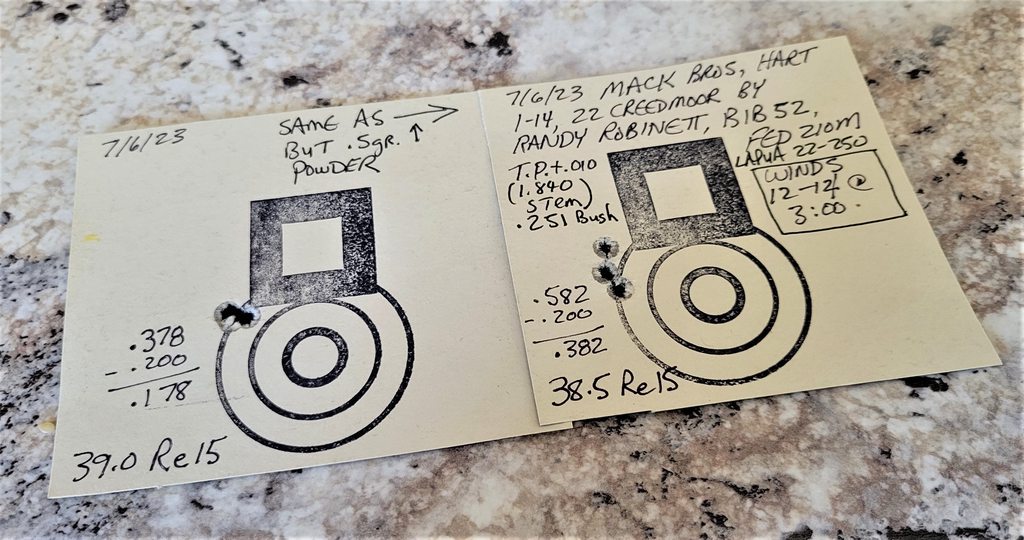 7/6/23
SAME AS →
BUT .5gr. ↑
POWDER
.378
- .200
.178
39.0 Re15
7/6/23 MACK BROS, HART
1-14, 22 CREEDMOOR BY
RANDY ROBINETT, BIB 52,
FED 210M
LAPUA 22-250
T.P. + .010
(1.840
STEM)
.251 Bush
WINDS
12-14 @
3:00.
.582
- .200
.382
38.5 Re15